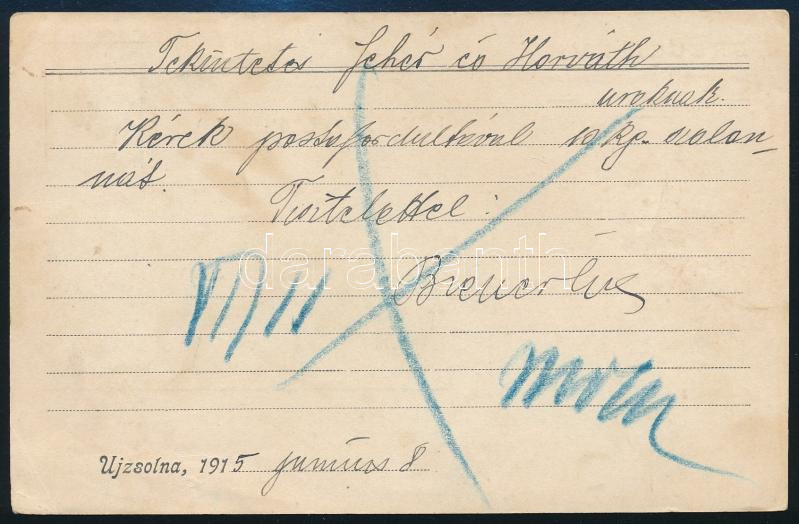 Tekintetes Fehér és Horváth
uraknak.
Kérek postafordultával 10 kg. szalon-
nát.
Tisztelettel:
darabanth
VI/11
Ujzsolna, 1915 junius 8